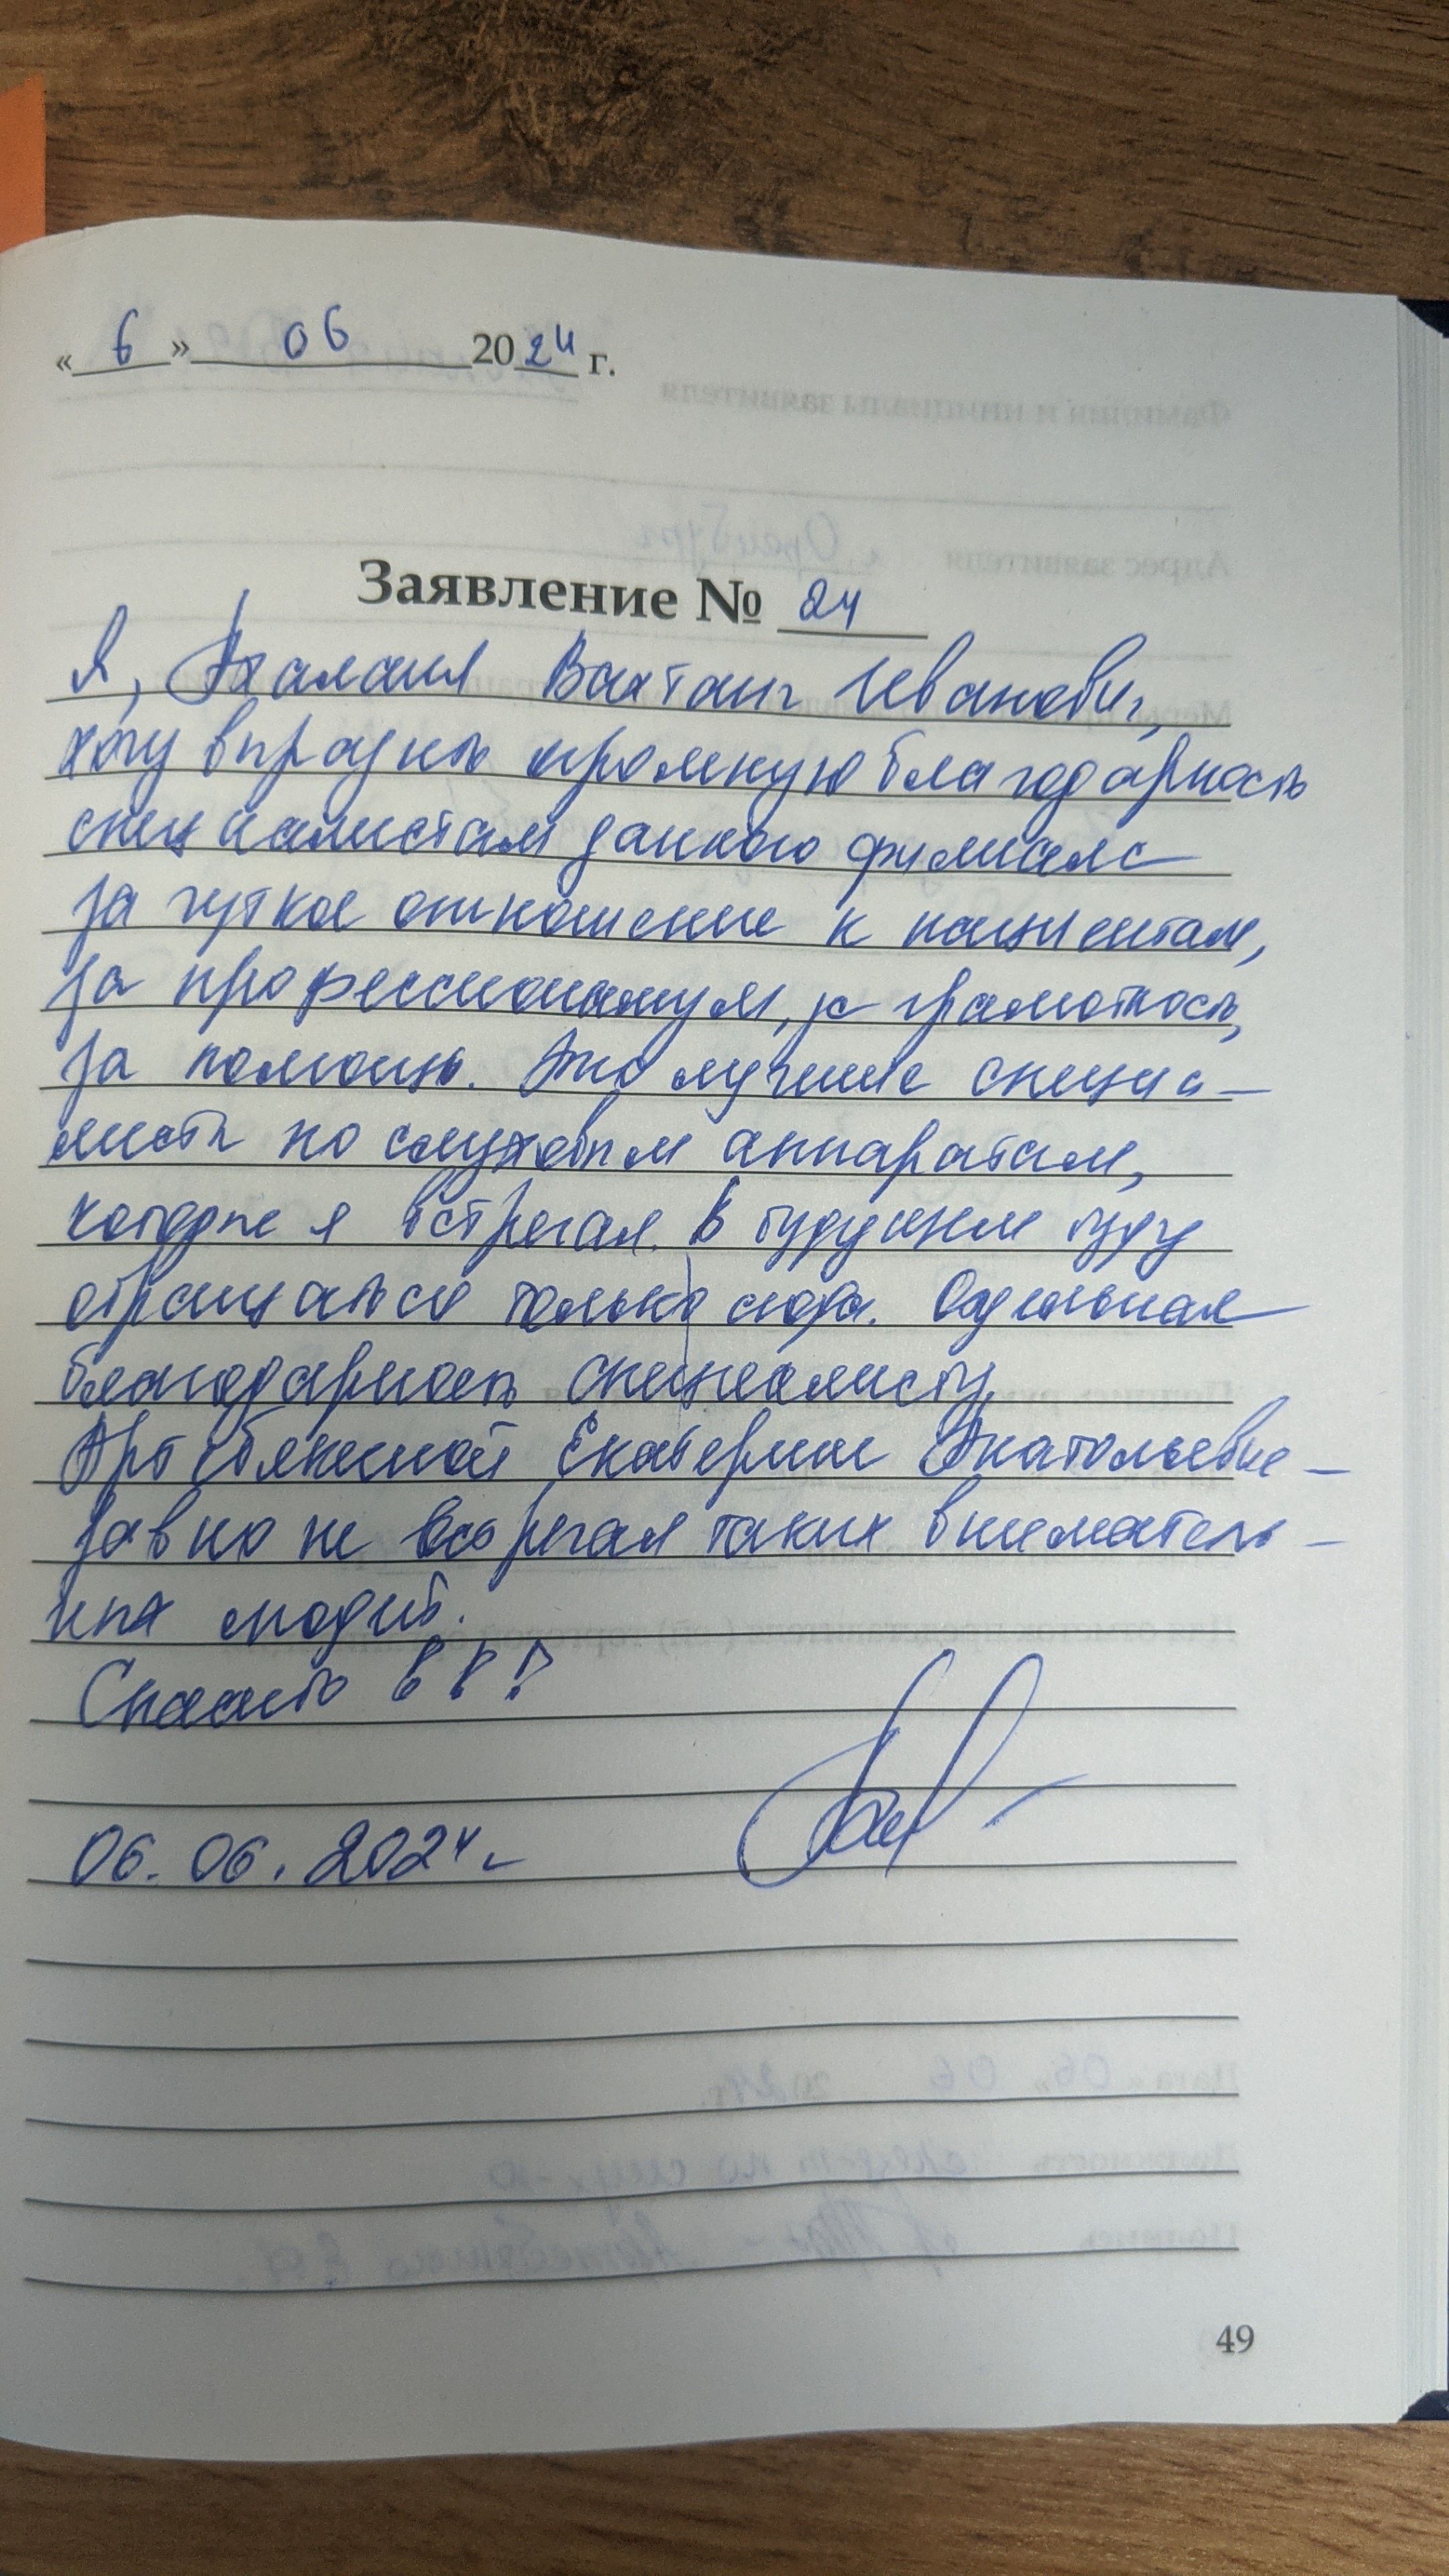 « 6 » 06 2024 г.
Заявление № 24
Я, Вахтанг Иванович,
хочу выразить огромную благодарность
специалистам данного филиала
за чуткое отношение к пациентам,
за профессионализм, за грамотность,
за помощь. Это лучшие специа-
листы по слуховым аппаратам,
которые я встречал. В будущем буду
обращаться только сюда. Отдельная
благодарность специалисту
Екатерине Анатольевне -
давно не встречал таких вниматель-
ных людей.
Спасибо !!!
06.06.2024г.
49